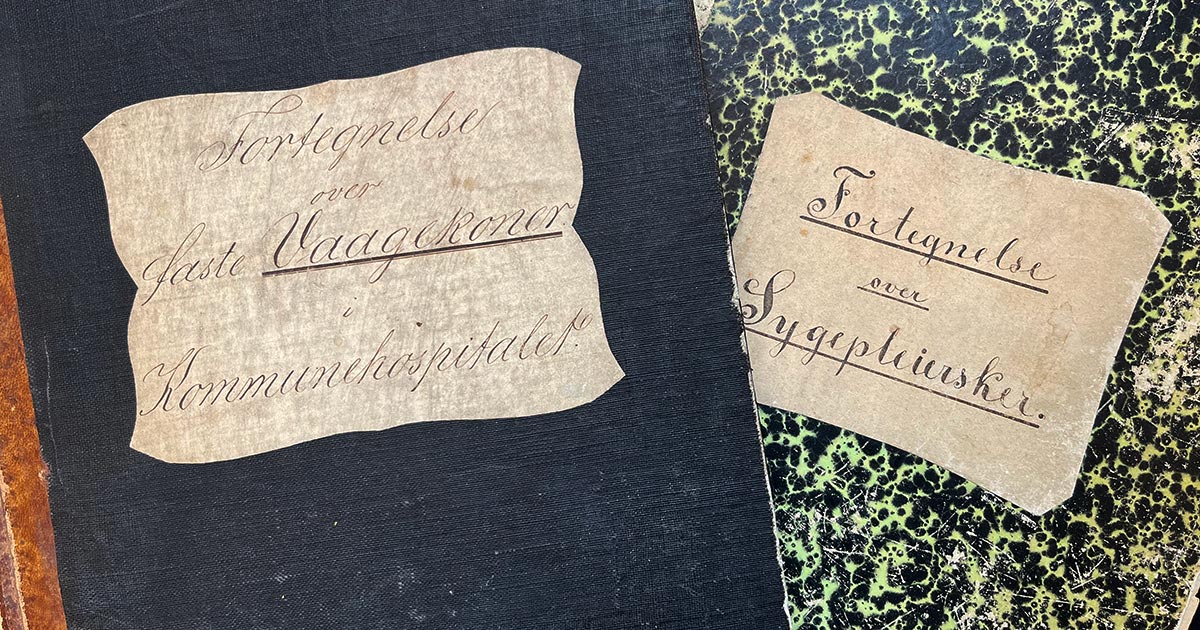 Fortegnelse
over
faste Vaagekoner
i
Kommunehospitalet.
Fortegnelse
over
Sygepleiersker.